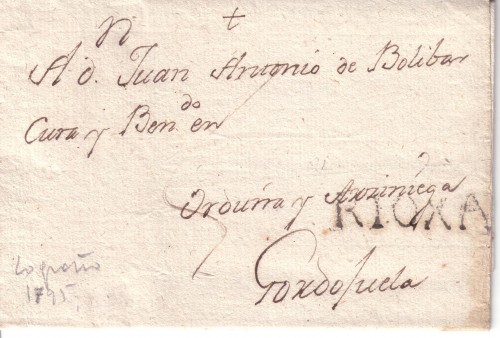 +
A d. Juan Antonio de Bolibar
Cura y Ben.do en
Orduña y Arziniega
RIOXA
Gordojuela
Logroño
1795